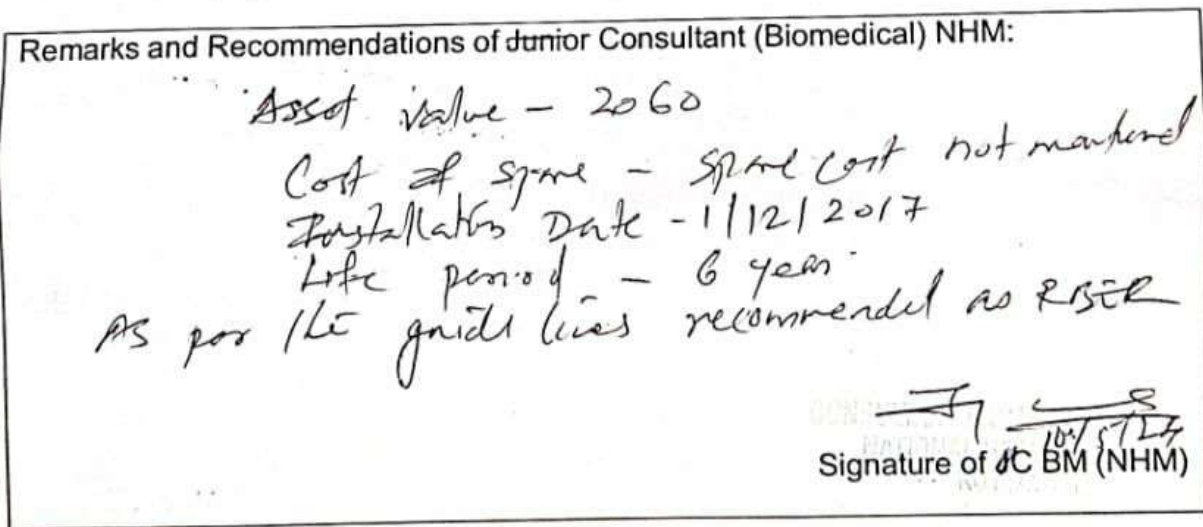 Remarks and Recommendations of Junior Consultant (Biomedical) NHM:
Asset value - 2060
Cost of spare - Spare cost not mentioned
Installation Date - 1/12/2017
Life period - 6 year
As per the guide lines recommended as RBER
10/5/24
Signature of JC BM (NHM)